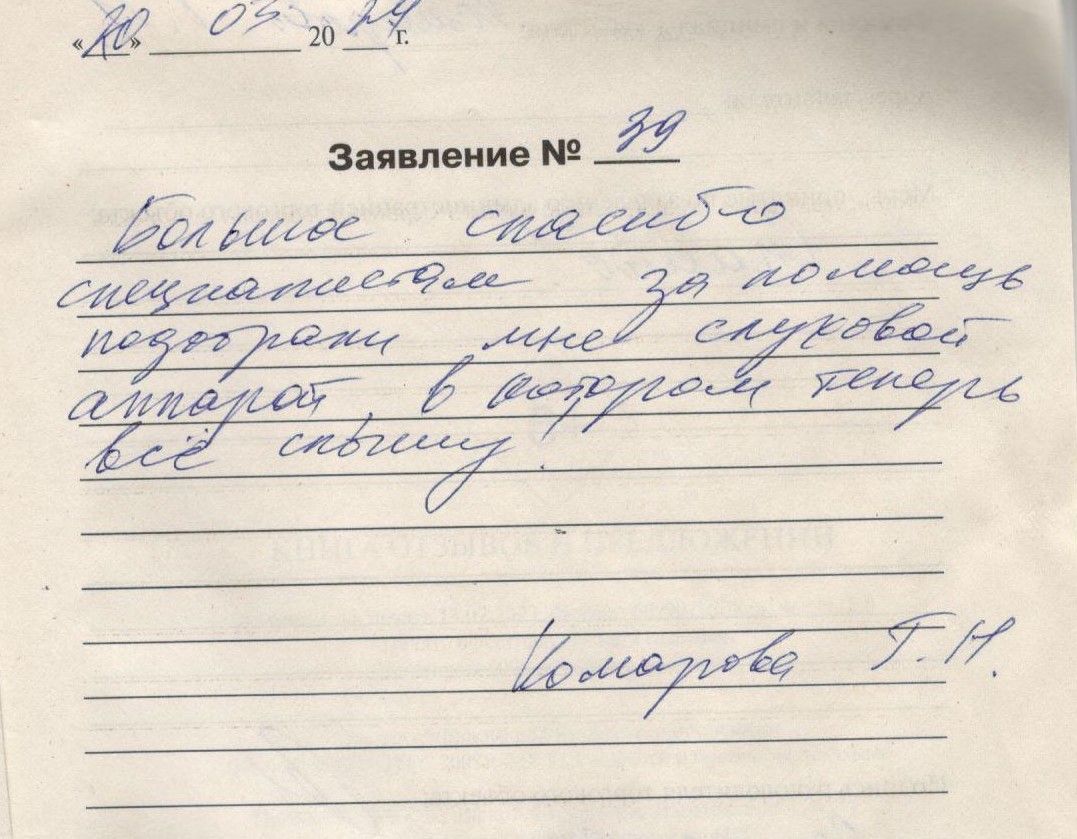 «20» 03 2024 г.
Заявление № 39
Большое спасибо
специалистам за помощь
подобрали мне слуховой
аппарат, в котором теперь
всё слышу.
Комарова Т.Н.